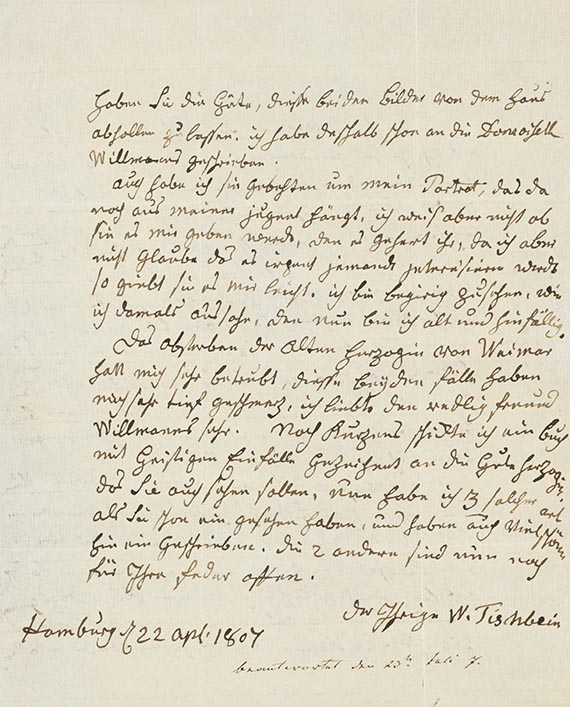 haben Sie die Güte, diesse beiden bilder von dem Haus
abhollen zu lassen. ich habe deshalb schon an die Domoiselle
Willmanns geschrieben.
auch habe ich sie gebehten um mein Portrat, das da
noch aus meiner jugent hängt, ich weiß aber nicht ob
sie es mir geben werde, den es gehert ihr, da ich aber
nicht glaube das es irgent jemand interesieren werde
so giebt sie es mir leicht. ich bin begirig zu sehen, wie
ich damals aussahe, den nun bin ich alt und hinfällig.
Das absterben der alten Herzogin von Weimar
hatt mich sehr betrubt, diesse beyden fälle haben
mich sehr tief geschmerz, ich liebte den redlig freund
Willmanns sehr. Noch Kurzens schickte ich ein buch
mit Geistigen Einfälle gezeichnet an die Gute Herzogin,
das Sie auch sehen sollen, Nun habe ich 3 solcher art
als Sie schon ein gesehen haben, und haben auch Viel schön
hin ein Geschrieben. die 2 andern sind nun noch
für Ihre feder offen.
der Ihrige W. Tischbein
Hamburg d 22 apl. 1807
beantwortet den 23t Juli 7.